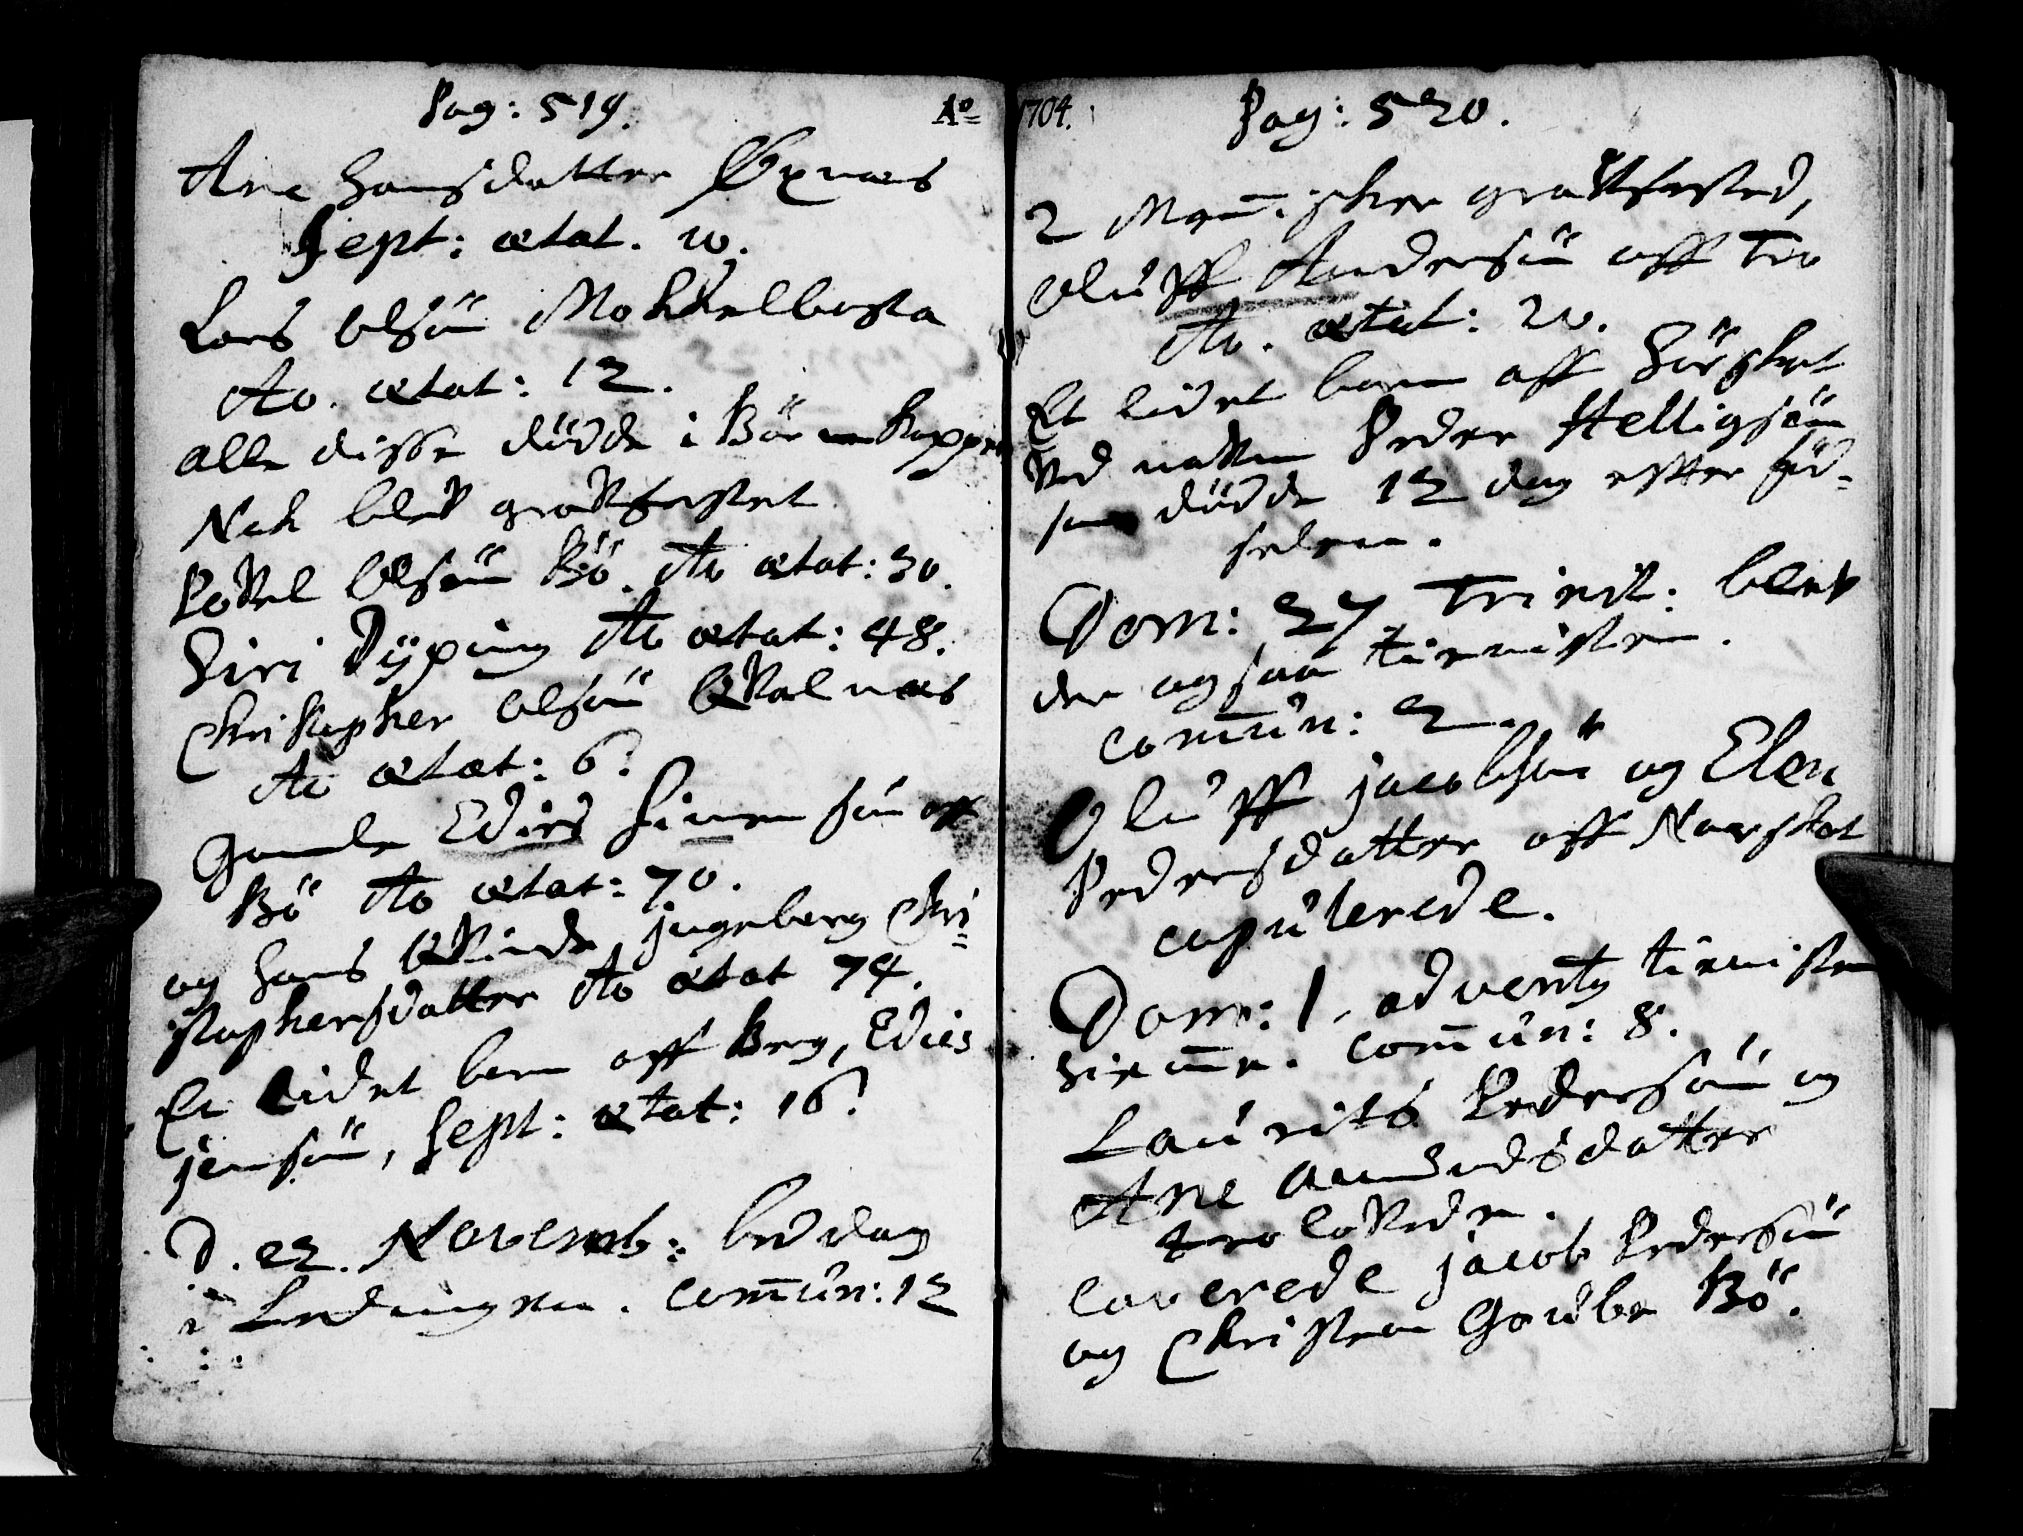 Pag: 519.
Aº
Ane Hansdatter Øxnæs
Sept: ætat. 10.
Lars Olsön
Ao. ætat: 12.
alle disse dödde i Börnekopper
Nok blev graffestet
Povel Olsön Bö. Ao ætat: 30.
Siri Dyping Ao ætat: 48.
Christopher Olsön
Ao ætat: 6.
Gamle Edies Simensön aff
Bö Ao ætat: 70.
og hans qvinde, Ingeborg Chri=
stophersdatter Ao ætat 74.
Et lidet barn aff Berg, Edies
Jensön, Sept: ætat: 16.
D. 22. Novemb: beddag
i Lødingen. Com̄un: 12
1704.
Pag: 520.
2 graffested,
Oluff Andersön aff Tro
Ao. ætat: 20.
Et lidet barn aff
ved nafn Peder Helligsön
som dödde 12 dag effter föd-
selen.
Dom: 27 Trinit: blev
der ogsaa tienisten.
com̄un: 2.
Oluff Jacobsön og Elen
Pedersdatter aff Norskot
copulerede.
Dom: 1. adventy tienisten
hiem̄e. com̄un: 8.
Laurits Pedersön og
Ane Amundsdatter
trolovede.
Caverede Jacob Pedersön
og Christen Bö.